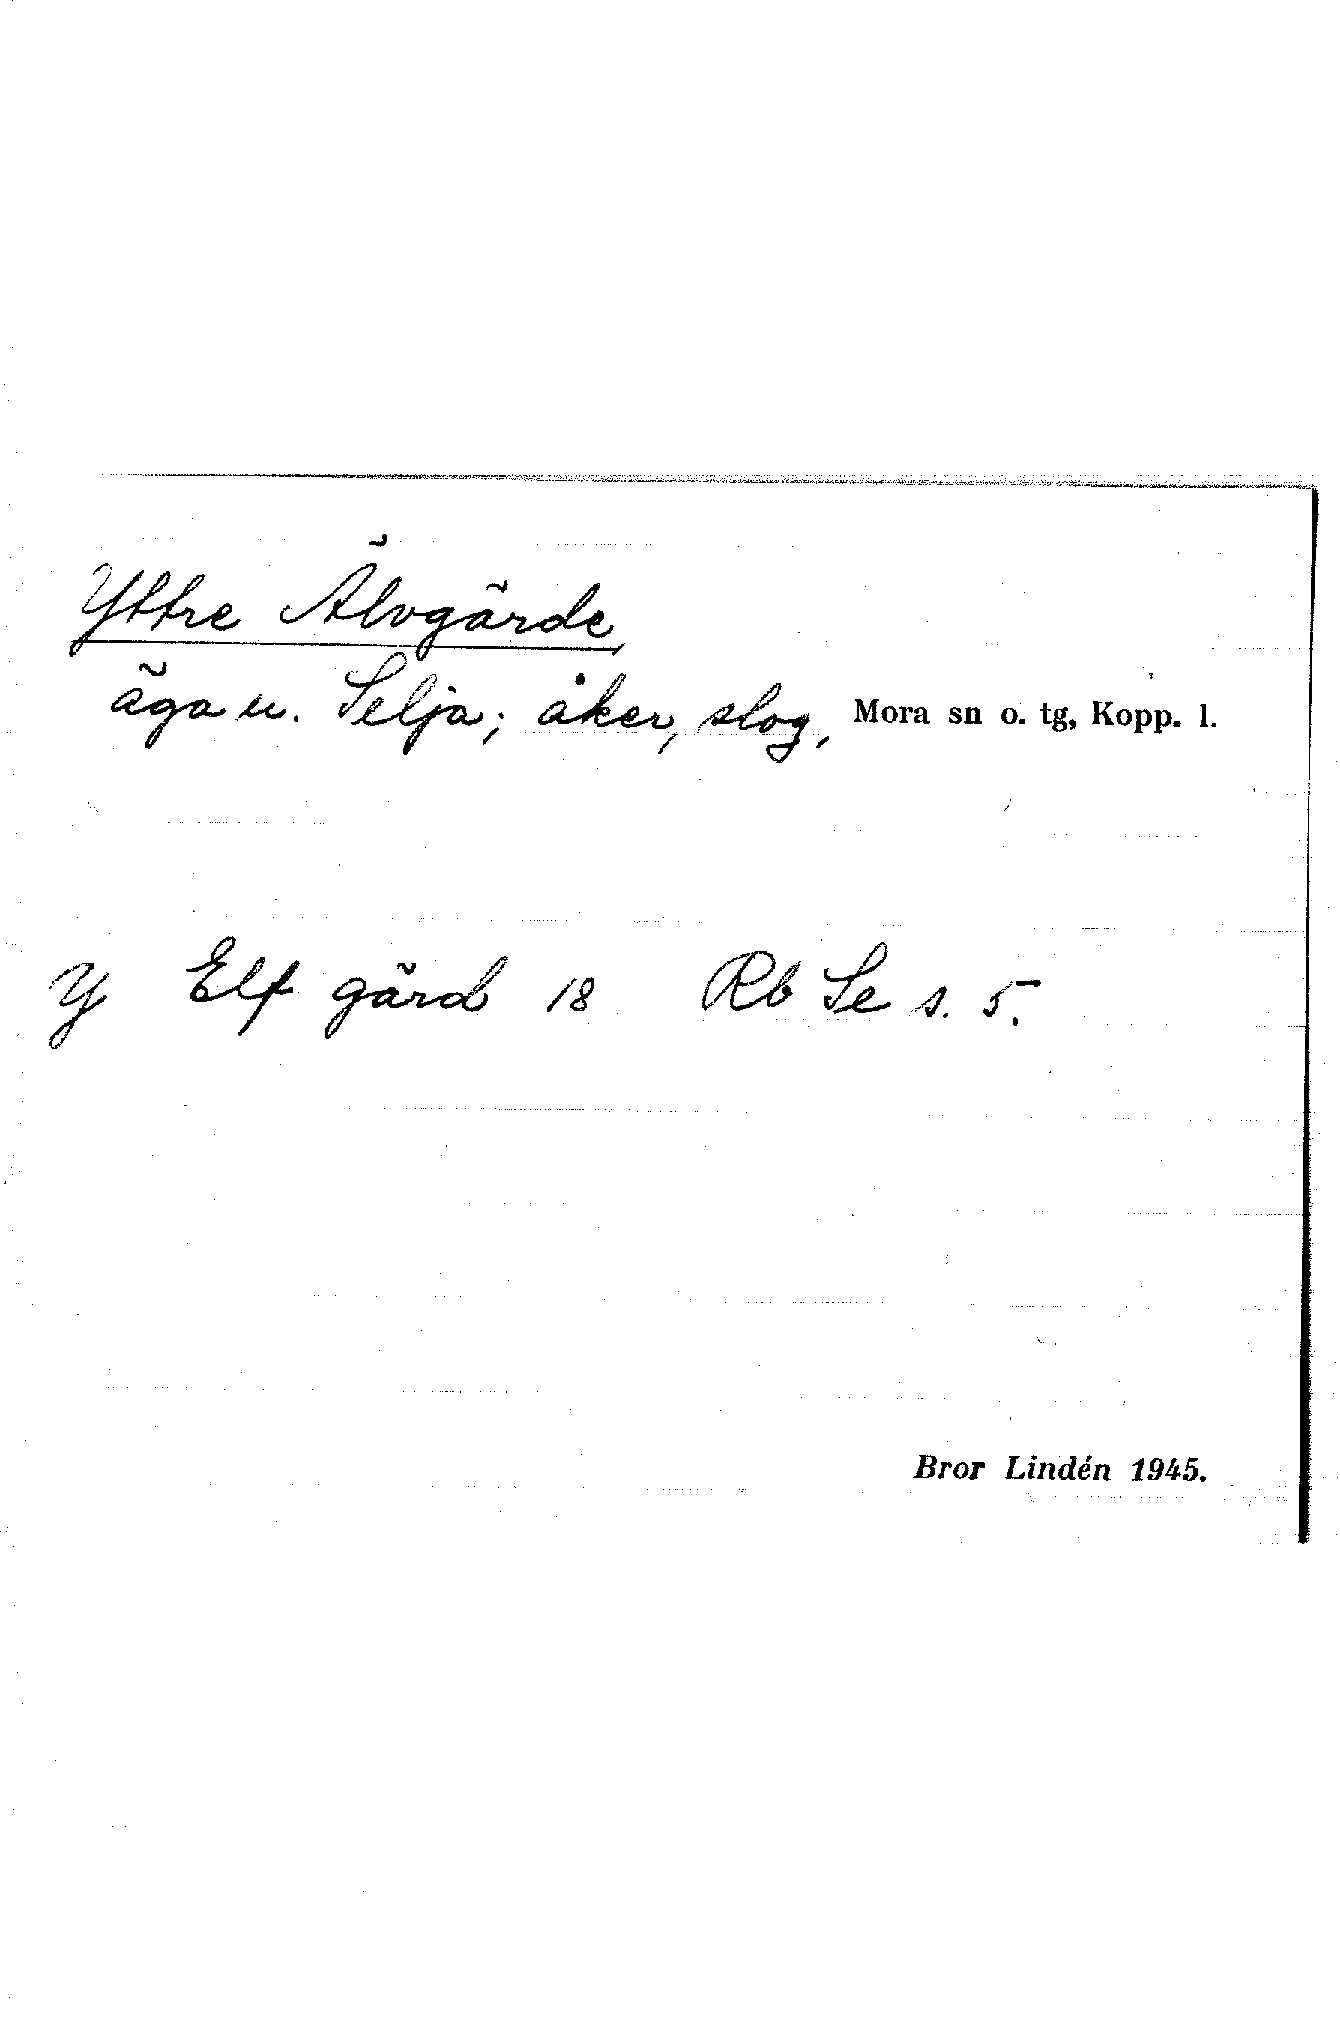 Yttre Älvgärde
äga u. Selja; åker, slog, Mora sn o. tg, Kopp. l.
Y Elf gärd 18 Rb Se s. 5.
Bror Lindén 1945.